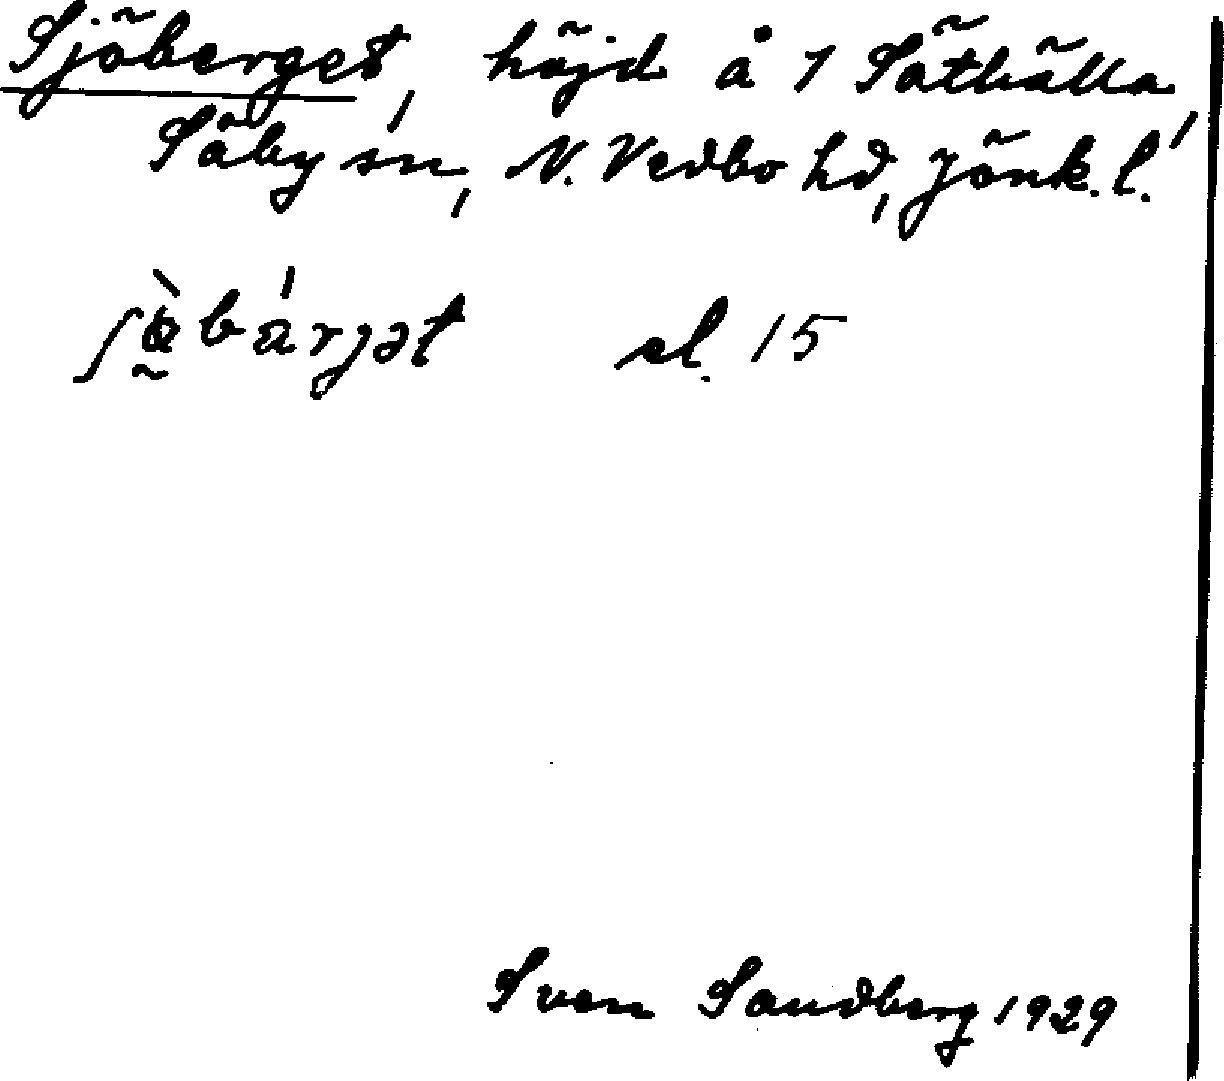 Sjöberget, höjd å 1 Såthälla,
Säby sn, N. Vedbo hd, Jönk. l.
el. 15
Sven Sandberg 1929